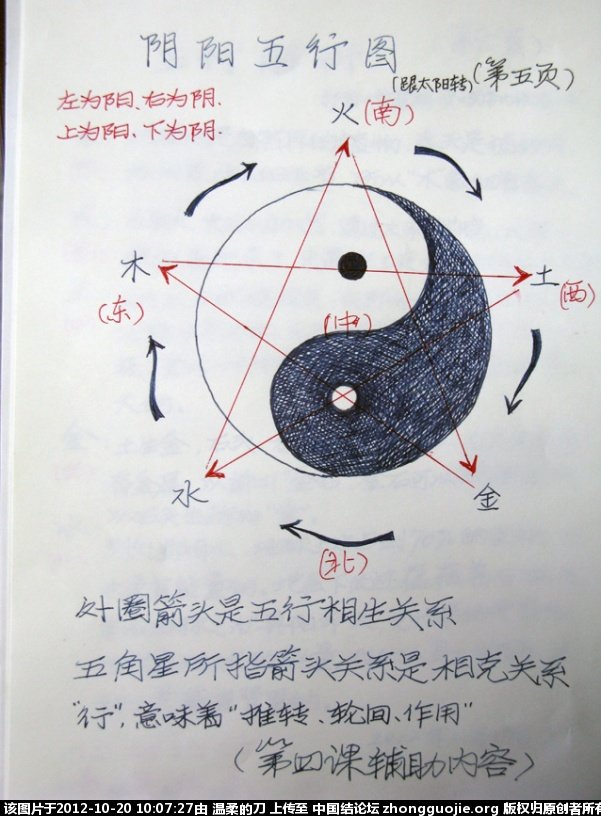 阴阳五行图
(跟太阳转)(第五页)
左为阳、右为阴.
上为阳、下为阴.
火(南)
木
土
(东)
(西)
(中)
水
金
(北)
外圈箭头是五行相生关系
五角星所指箭头关系是相克关系
"行",意味着"推转、轮间、作用"
(第四课辅助内容)
该图片于2012-10-20 10:07:27由 温柔的刀 上传至 中国结论坛 zhongguojie.org 版权归原创者所有